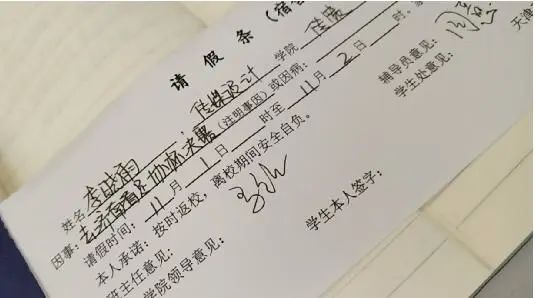 请 假 条 (宿
姓名 李晓雨 : 传媒设计 学院 传媒
因事: 去济南看足协杯决赛 (注明事因) 或因病: 时,
请假时间: 11 月 1 日 时至 11 月 2 日
本人承诺: 按时返校, 离校期间安全自负。 辅导员意见: 同意
班主任意见: 学生处意见: 天津
学院领导意见: 学生本人签字: